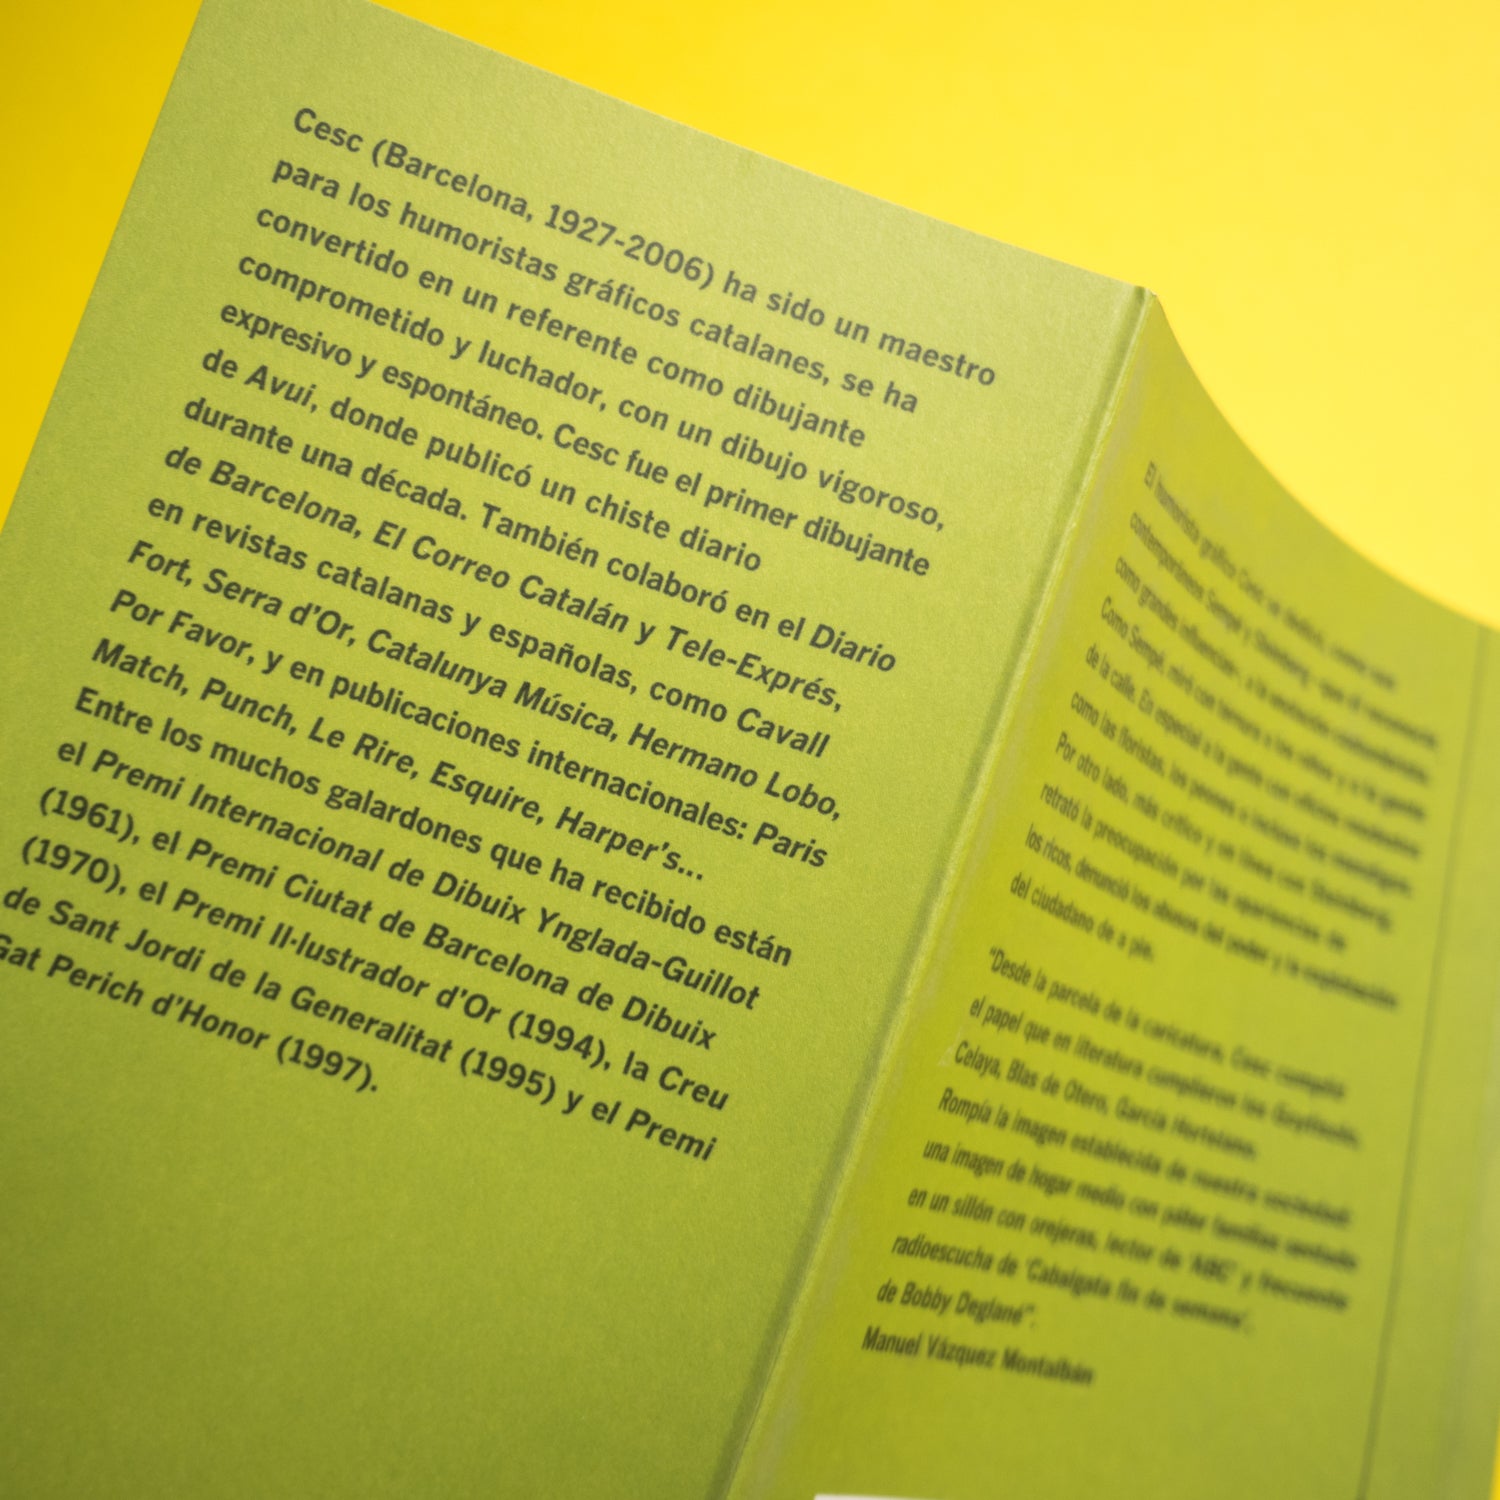 Cesc (Barcelona, 1927-2006) ha sido un maestro
para los humoristas gráficos catalanes, se ha
convertido en un referente como dibujante
comprometido y luchador, con un dibujo vigoroso,
expresivo y espontáneo. Cesc fue el primer dibujante
de Avui, donde publicó un chiste diario
durante una década. También colaboró en el Diario
de Barcelona, El Correo Catalán y Tele-Exprés,
en revistas catalanas y españolas, como Cavall
Fort, Serra d'Or, Catalunya Música, Hermano Lobo,
Por Favor, y en publicaciones internacionales: Paris
Match, Punch, Le Rire, Esquire, Harper's...
Entre los muchos galardones que ha recibido están
el Premi Internacional de Dibuix Ynglada-Guillot
(1961), el Premi Ciutat de Barcelona de Dibuix
(1970), el Premi Il·lustrador d'Or (1994), la Creu
de Sant Jordi de la Generalitat (1995) y el Premi
Gat Perich d'Honor (1997).
El humorista gráfico Cesc
contemporáneos Sempé y Steinberg
como grandes influencias
Como Sempé, miró con ternura a los niños y a la gente
de la calle. En especial a la gente con oficios modestos
como las floristas, los
Por otro lado, más crítico y en línea con Steinberg,
retrató la preocupación por las apariencias de
los ricos, denunció los abusos del poder y la explotación
del ciudadano de a pie.
"Desde la parcela de la caricatura, Cesc cumplió
el papel que en literatura cumplieron los Goytisolo,
Celaya, Blas de Otero, García Hortelano.
Rompía la imagen establecida de nuestra sociedad:
una imagen de hogar medio con páter familias sentado
en un sillón con orejeras, lector de 'ABC' y frecuente
radioescucha de 'Cabalgata fin de semana',
de Bobby Deglané".
Manuel Vázquez Montalbán